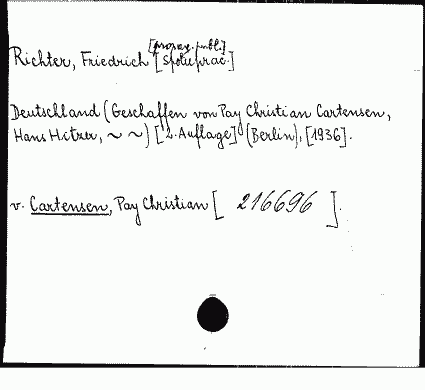 [propag. publ.]
Richter, Friedrich [Spoluprac.]
Deutschland (Geschaffen von Pay Christian Cartensen,
Hans Hitzer, ~ ~) [2. Auflage] (Berlin), [1936].
v. Cartensen, Pay Christian [ 216696 ].